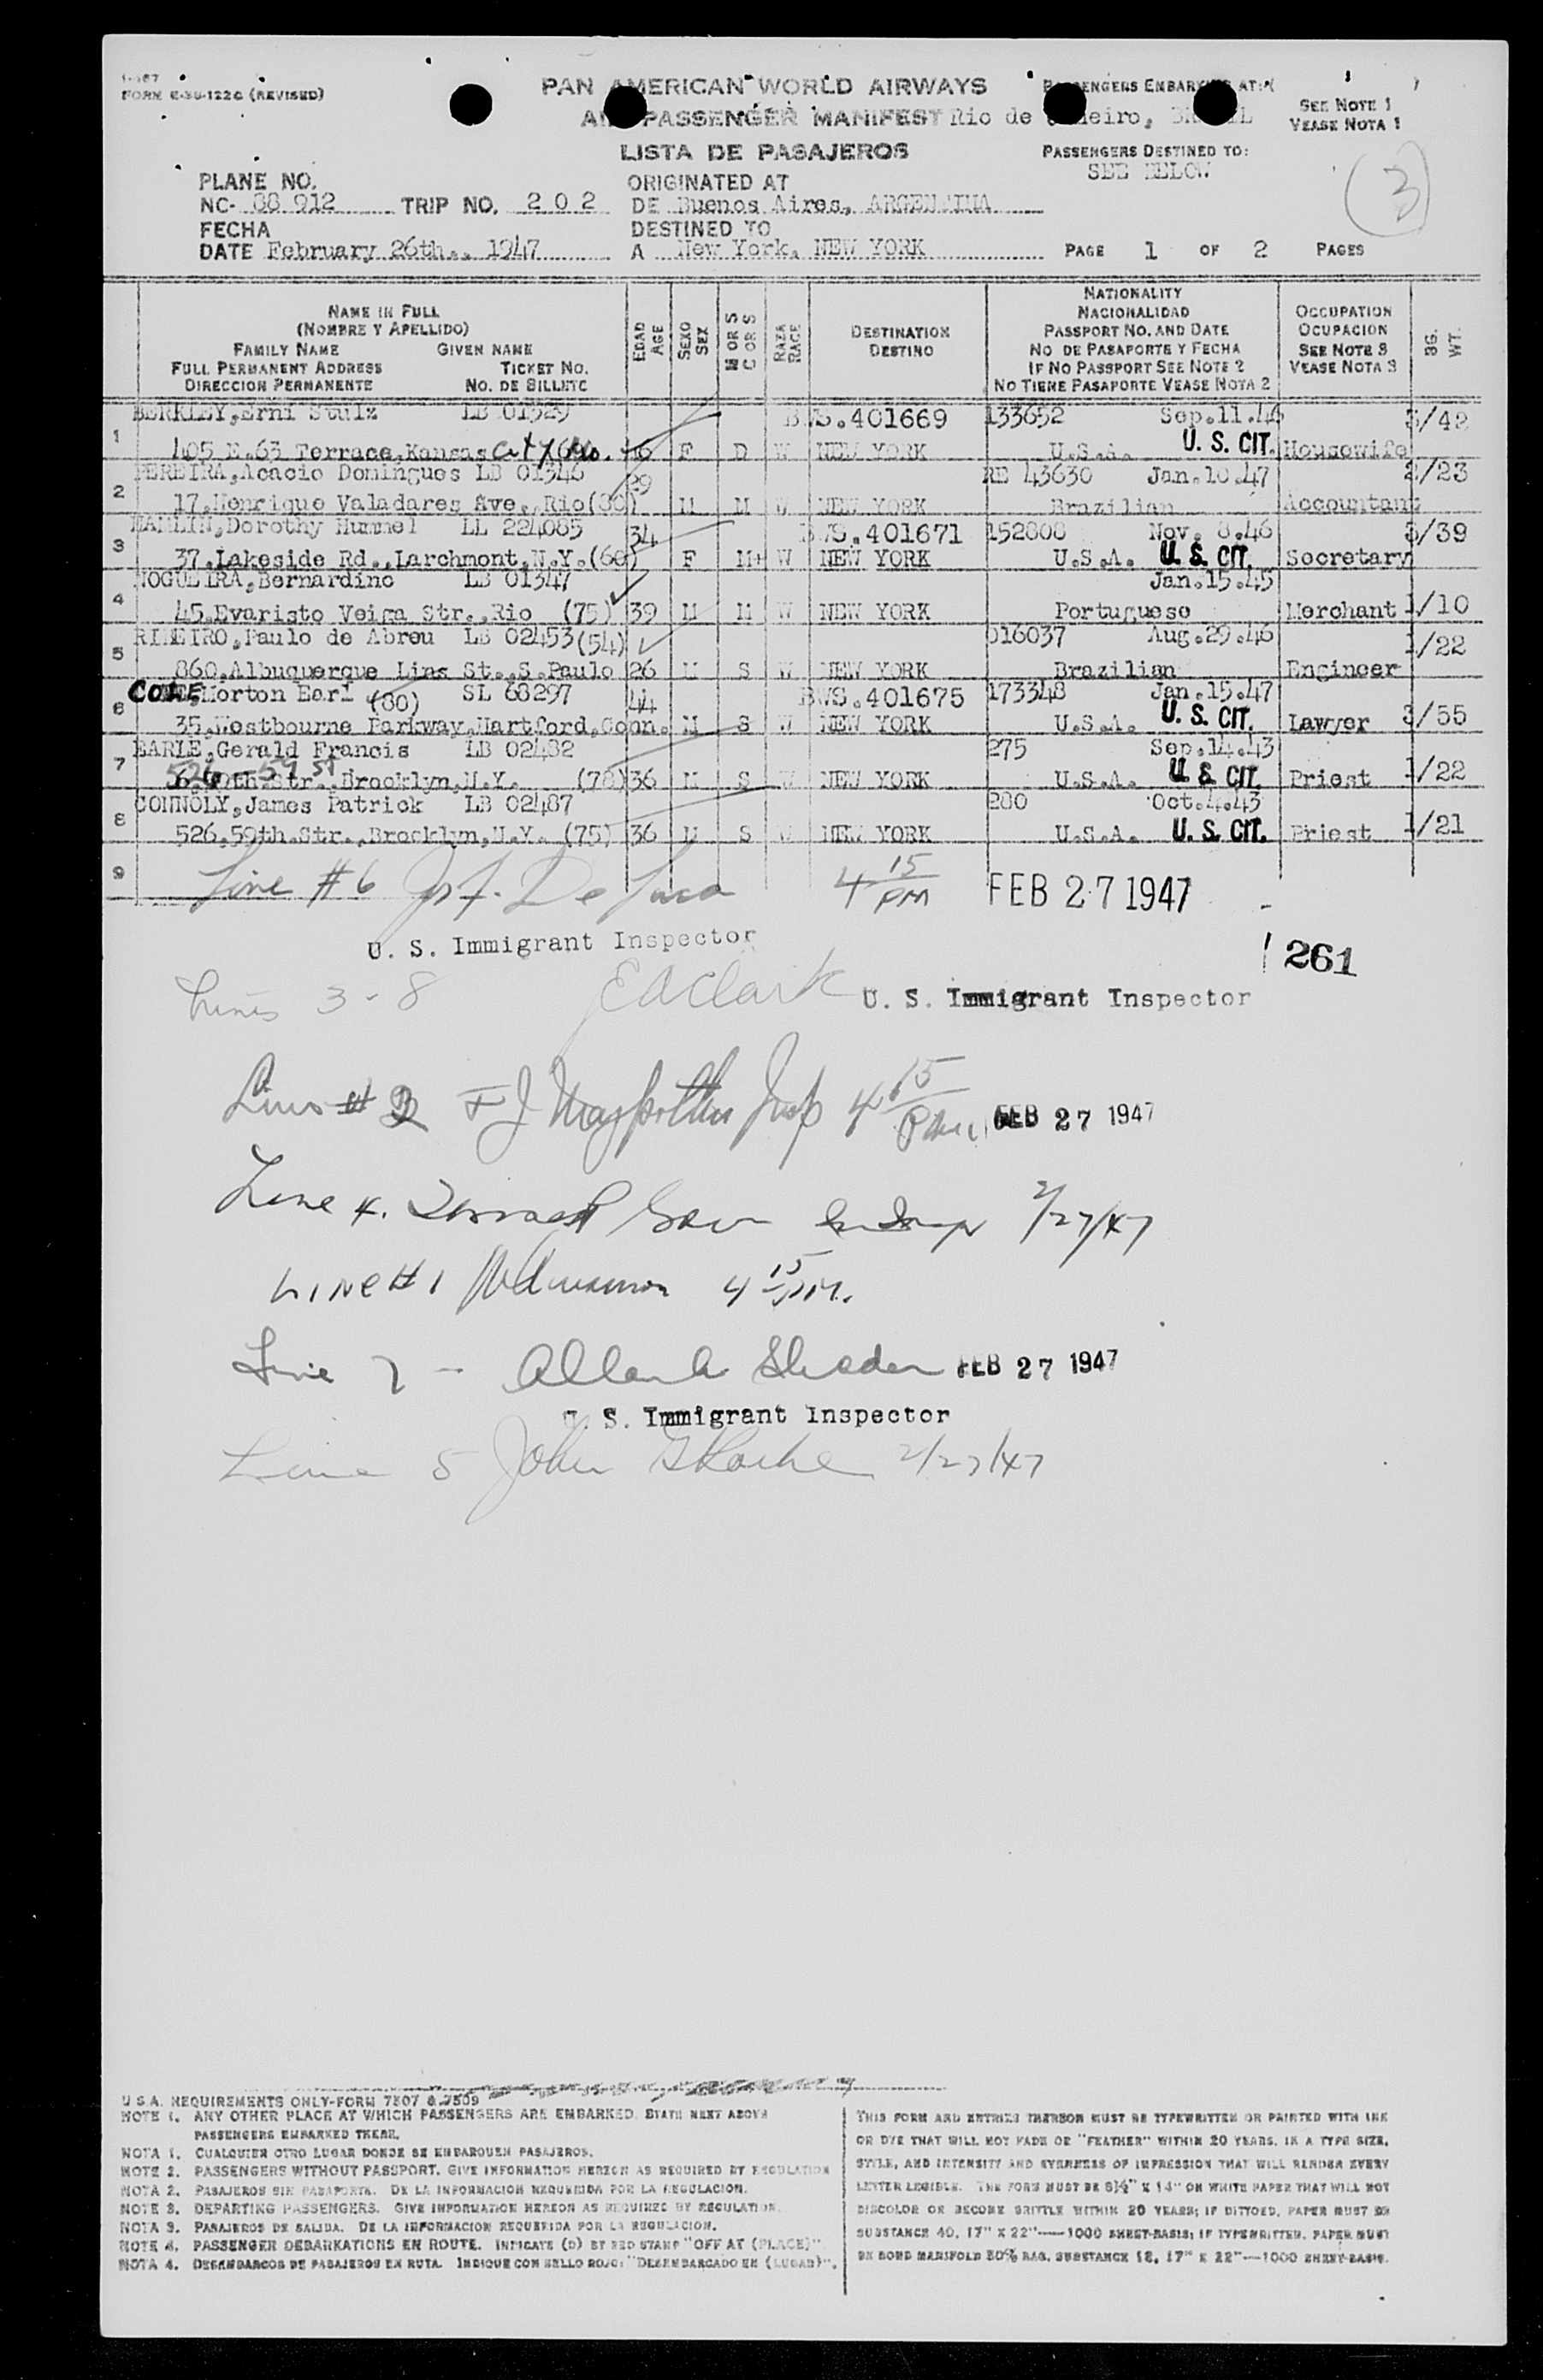 FORM
(REVISED)
PAN AMERICAN WORLD AIRWAYS
PASSENGER MANIFEST
LISTA DE PASAJEROS
PASSENGERS EMBARKING AT:
Rio de Janeiro, BRAZIL
PASSENGERS DESTINED TO:
SEE BELOW
SEE NOTE 1
VEASE NOTA 1
(3)
PLANE NO.
NC- 88 912 TRIP NO. 2 0 2
FECHA
DATE February 26th., 1947
ORIGINATED AT
DE Buenos Aires, ARGENTINA
DESTINED TO
A New York, NEW YORK
PAGE 1 OF 2 PAGES
NAME IN FULL
(NOMBRE Y APELLIDO)
FAMILY NAME GIVEN NAME
FULL PERMANENT ADDRESS TICKET NO.
DIRECCION PERMANENTE NO. DE BILLETE
EDAD AGE
SEXO SEX
M OR S C OR S
RAZA RACE
DESTINATION
DESTINO
NATIONALITY
NACIONALIDAD
PASSPORT NO. AND DATE
NO DE PASAPORTE Y FECHA
IF NO PASSPORT SEE NOTE 2
NO TIENE PASAPORTE VEASE NOTA 2
OCCUPATION
OCUPACION
SEE NOTE 3
VEASE NOTA 3
BG. WT.
BERKLEY,Erni Stulz LB 01329 BWS.401669 133652 Sep.11.46 /42
1 405 E.63 Terrace,Kansas City F D W NEW YORK U.S.A. U. S. CIT. Housewife
PEREIRA,Acacio Domingues LB 01346 29 RE 43630 Jan.10.47 2/23
2 17.Henrique Valadares Ave.,Rio(80) M M W NEW YORK Brazilian Accountant
HAMLIN,Dorothy Hummel LL 224085 34 BWS.401671 152808 Nov. 8.46 3/39
3 37.Lakeside Rd.,Larchmont,N.Y.(60) F M W NEW YORK U.S.A. U. S. CIT. Secretary
NOGUEIRA,Bernardino LB 01347 Jan.15.45
4 45.Evaristo Veiga Str.,Rio (75) 39 M M W NEW YORK Portuguese Merchant 1/10
RIBEIRO,Paulo de Abreu LB 02453(54) 016037 Aug.29.46 1/22
5 860.Albuquerque Lins St.,S.Paulo 26 M S W NEW YORK Brazilian Engineer
COLE,Morton Earl (80) SL 68297 44 BWS.401675 173348 Jan.15.47
6 35.Westbourne Parkway,Hartford,Conn. M S W NEW YORK U.S.A. U. S. CIT. Lawyer 3/55
EARLE,Gerald Francis LB 02482 275 Sep.14.43
7 526 59 St Str.,Brooklyn,N.Y. (78) 36 M S W NEW YORK U.S.A. U. S. CIT. Priest 1/22
CONNOLY,James Patrick LB 02487 280 Oct.4.43
8 526.59th.Str.,Brooklyn,N.Y. (75) 36 M S W NEW YORK U.S.A. U. S. CIT. Priest 1/21
9 Line #6 4 15 PM FEB 27 1947
U. S. Immigrant Inspector
261
Lines 3-8 E A Clark U. S. Immigrant Inspector
Line # 2 4 15 PM FEB 27 1947
Line 4. 2/27/47
LINE #1 4 15 PM.
Line 7 - FEB 27 1947
U. S. Immigrant Inspector
Line 5 John 2/27/47
U S A. REQUIREMENTS ONLY-FORM 7507 & 7509
NOTE 1. ANY OTHER PLACE AT WHICH PASSENGERS ARE EMBARKED. STATE NEXT ABOVE
PASSENGERS EMBARKED THERE.
NOTA 1. CUALQUIER OTRO LUGAR DONDE SE EMBARQUEN PASAJEROS.
NOTE 2. PASSENGERS WITHOUT PASSPORT. GIVE INFORMATION HEREON AS REQUIRED BY REGULATION
NOTA 2. PASAJEROS SIN PASAPORTE. DE LA INFORMACION REQUERIDA POR LA REGULACION.
NOTE 3. DEPARTING PASSENGERS. GIVE INFORMATION HEREON AS REQUIRED BY REGULATION.
NOTA 3. PASAJEROS DE SALIDA. DE LA INFORMACION REQUERIDA POR LA REGULACION.
NOTE 4. PASSENGER DEBARKATIONS EN ROUTE. INDICATE (D) BY RED STAMP "OFF AT (PLACE)".
NOTA 4. DESEMBARCOS DE PASAJEROS EN RUTA. INDIQUE CON SELLO ROJO: "DESEMBARCADO EN (LUGAR)".
THIS FORM AND ENTRIES THEREON MUST BE TYPEWRITTEN OR PRINTED WITH INK
OR DYE THAT WILL NOT FADE OR "FEATHER" WITHIN 20 YEARS, IN A TYPE SIZE,
STYLE, AND INTENSITY AND EVENNESS OF IMPRESSION THAT WILL RENDER EVERY
LETTER LEGIBLE. THE FORM MUST BE 8½" X 14" ON WHITE PAPER THAT WILL NOT
DISCOLOR OR BECOME BRITTLE WITHIN 20 YEARS; IF DITTOED, PAPER MUST BE
SUBSTANCE 40, 17" X 22"—1000 SHEET-BASIS; IF TYPEWRITTEN, PAPER MUST
BE BOND MANIFOLD 50% RAG, SUBSTANCE 18, 17" X 22"—1000 SHEET-BASIS.